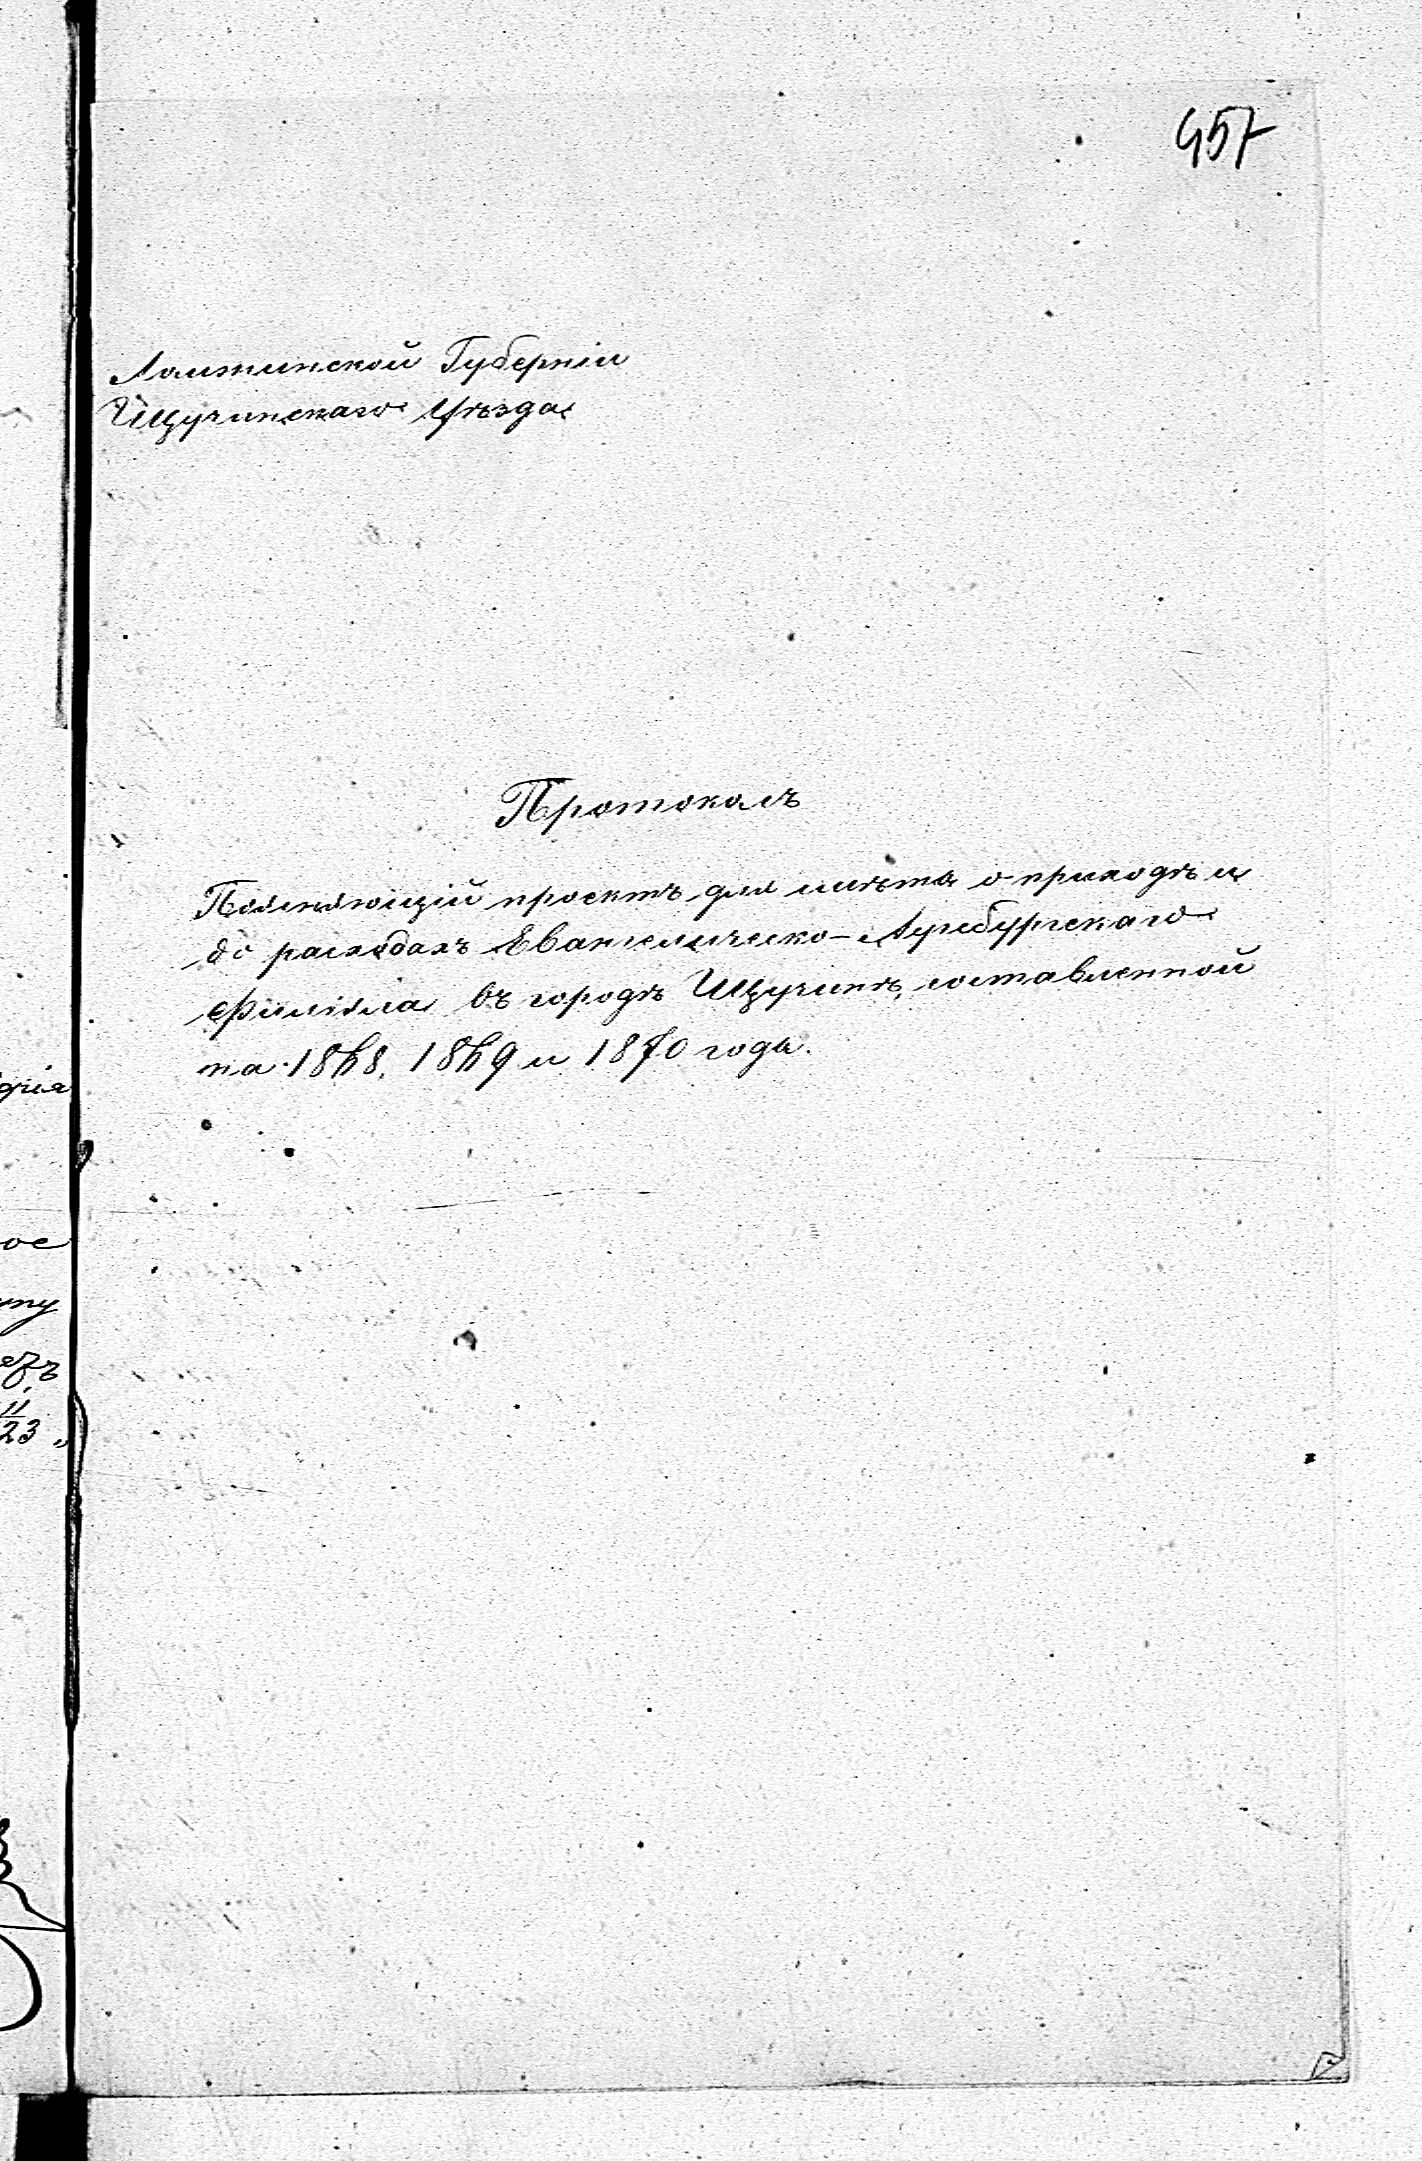 457
Ломжинской Губерніи
Щучинскаго Уѣзда
Протоколъ
Поясняющій проектъ для смѣты о приходѣ и
о расходахъ Евангелическо-Аугсбургскаго
Филіяла въ городѣ Щучинѣ, составленной
на 1868, 1869 и 1870 года.
ое
11
23 „